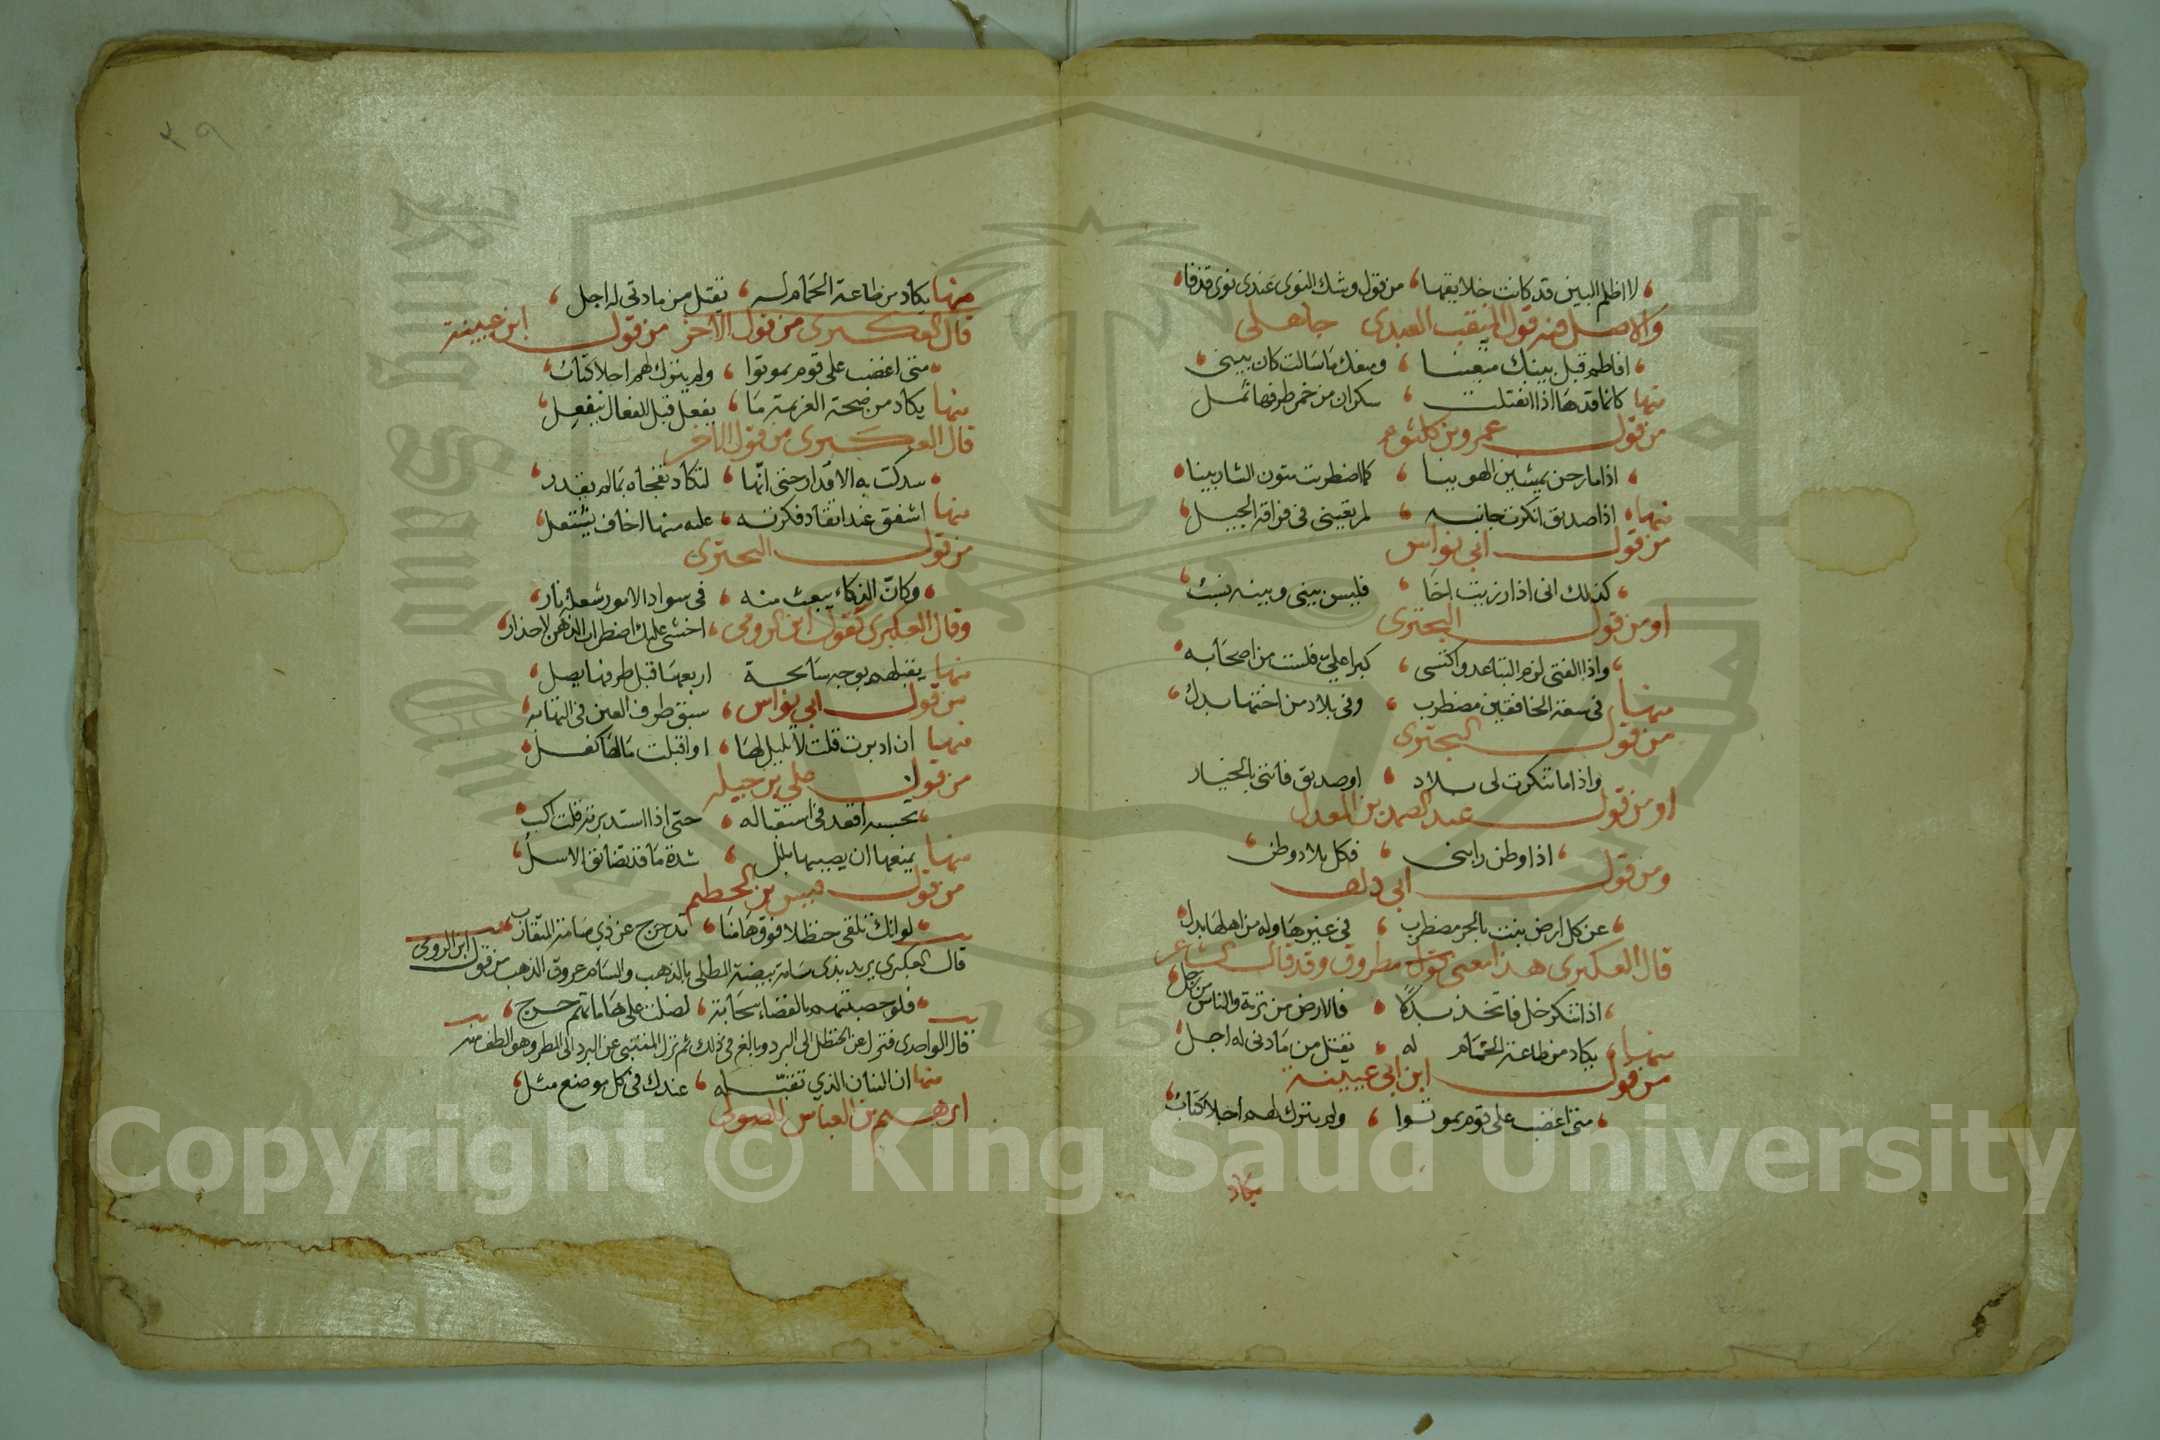 لا اظلم البين قد كانت خلايقها من قول وشك النوى عندى نوى قذفا
والاصل فيه قول المثقب العبدى جاهلى
افاطم قبل بينك متعينا ومنعك ما سالت كان تبينى
منها كانما قدها اذا انفتلت سكران من خمر طرفها ثمل
من قول عمرو بن كلثوم
اذا ما رحن يمشين الهوينا كما اضطربت متون الشاربينا
منها اذا صديق انكرت جانبه لم تعينى فى فراقه الحيل
من قول ابى نواس
كذلك انى اذا رزيت اخا فليس بينى وبينه نسب
او من قول البحترى
واذا الفتى لزم التباعد واكتسى كبرا على فلست من اصحابه
منها فى سعة الخافقين مضطرب وفى بلاد من اختها بدل
من قول البحترى
واذا ما تنكرت لى بلاد او صديق فاننى بالخيار
او من قول عبد الصمد بن المعدل
اذا وطن رابنى فكل بلاد وطن
ومن قول ابى دلف
عن كل ارض بنت بالحر مضطرب فى غيرها وله من اهلها بدل
قال العكبرى هذا معنى مطروق وقد قال الشاعر
اذا تنكر خل فاتخذ بدلا فالارض من تربة والناس من رجل
منها يكاد من طاعة الحمام له يقتل من ما دنى له اجل
من قول ابن ابى عيينة
متى اغضب على قوم يموتوا ولم يترك لهم اجلا كتاب
يكاد
٣٩
منها يكاد من طاعة الحمام له يقتل من ما دنى له اجل
قال العكبرى من قول الاخر من قول ابن عيينة
متى اغضب على قوم يموتوا ولم يترك لهم اجلا كتاب
منها يكاد من صحة العزيمة ما يفعل قبل الفعال ينفعل
قال العكبرى من قول الاخر
سدكت به الاقدار حتى انها لتكاد تفجاه بما لم يقدر
منها اشفق عند اتقاد فكرته عليه منها اخاف يشتعل
من قول البحترى
وكان الذكاء يبعث منه فى سواد الامور شعلة نار
وقال العكبرى كقول ابن الرومى اخشى عليك اضطرام الذهن لا حذارا
منها يقبلهم بوجه سابحة اربعها قبل طرفها يصل
من قول ابى نواس سبق طرف العين فى التهابه
منها ان ادبرت قلت لا تليل لها او اقبلت ما لها كفل
من قول على بن جبلة
تحسبه اقعد فى استقباله حتى اذا استدبرته قلت اكب
منها يمنعها ان يصيبها بلل شدة ما قد تضايق الاسل
من قول قيس بن الحطيم
لو انك تلقى حنظلا فوق هامنا تدحرج عن ذى سامه المتقارب
قال العكبرى يريد بذى سامه بيضة المطلى بالذهب والسام عروق الذهب من قول ابن الرومى
فلو حصبتهم بالفضاء سحابة لضلت على هاماتهم تدحرج
قال الواحدى فنزل عن الحنظل الى البرد وبالغ فى ذلك ثم نزل المتنبى عن البرد الى المطر وهو الطف منه
منها ان البنان الذي تقلبه عندك فى كل موضع مثل
ابرهيم بن العباس الصولى
Copyright © King Saud University
King Saud University